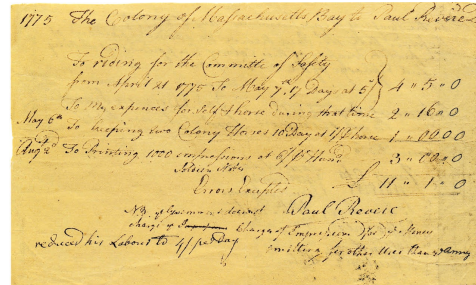 1775 The Colony of Massachusetts Bay to Paul Revere Dr
To riding for the Committe of Safty
from April 21 1775 To May 7th 17 Days at 5/ 4 " 5 " 0
To my expences for self & horse during that time 2 " 16 " 0
May 6th To keeping two Colony Horses 10 Day at 1/ horse 1 " 00 " 0
Augt 2d To Printing 1000 impressions at 6/ Hund 3 " 00 " 0
Soldiers Notes £ 11 " 1 " 0
Errors Excepted
Paul Revere
NB
charge of Charge of Impressions
reduced his Labour to 4/ per Day emitting for other Uses than ye Army